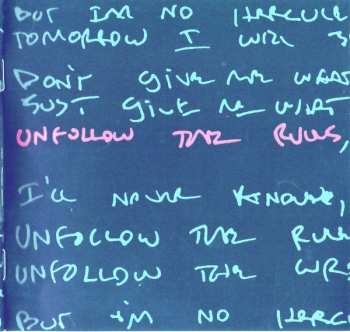 BUT I'M NO HERCULE
TOMORROW I WILL S
DON'T GIVE ME WHAT
JUST GIVE ME WHAT
UNFOLLOW THE RULES,
I'LL NEVER KNOW,
UNFOLLOW THE RUL
UNFOLLOW THE
BUT I'M NO HERC